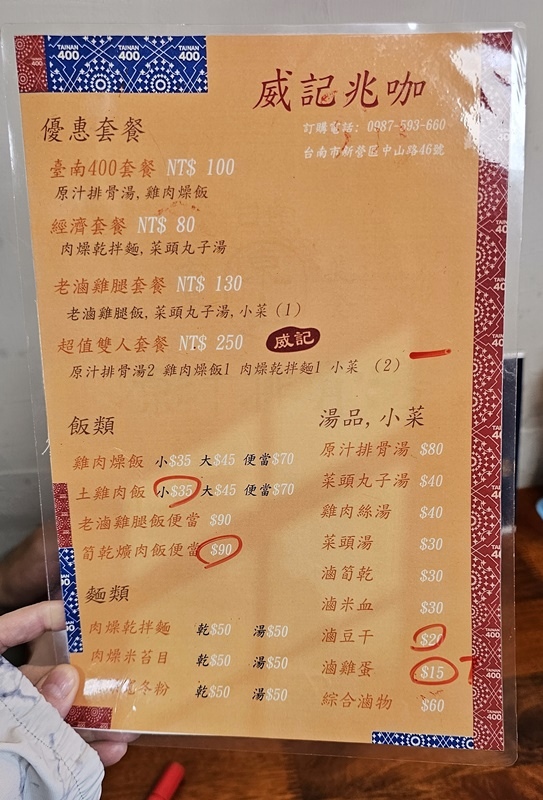 TAINAN 400 TAINAN 400 TAINAN 400
威記兆咖
訂購電話: 0987-593-660
台南市新營區中山路46號
優惠套餐
臺南400套餐 NT$ 100
原汁排骨湯, 雞肉燥飯
經濟套餐 NT$ 80
肉燥乾拌麵, 菜頭丸子湯
老滷雞腿套餐 NT$ 130
老滷雞腿飯, 菜頭丸子湯, 小菜 (1)
超值雙人套餐 NT$ 250 威記
原汁排骨湯2 雞肉燥飯1 肉燥乾拌麵1 小菜 (2)
飯類
雞肉燥飯 小$35 大$45 便當$70
土雞肉飯 小$35 大$45 便當$70
老滷雞腿飯便當 $90
筍乾爌肉飯便當 $90
麵類
肉燥乾拌麵 乾$50 湯$50
肉燥米苔目 乾$50 湯$50
冬粉 乾$50 湯$50
湯品, 小菜
原汁排骨湯 $80
菜頭丸子湯 $40
雞肉絲湯 $40
菜頭湯 $30
滷筍乾 $30
滷米血 $30
滷豆干 $20
滷雞蛋 $15
綜合滷物 $60